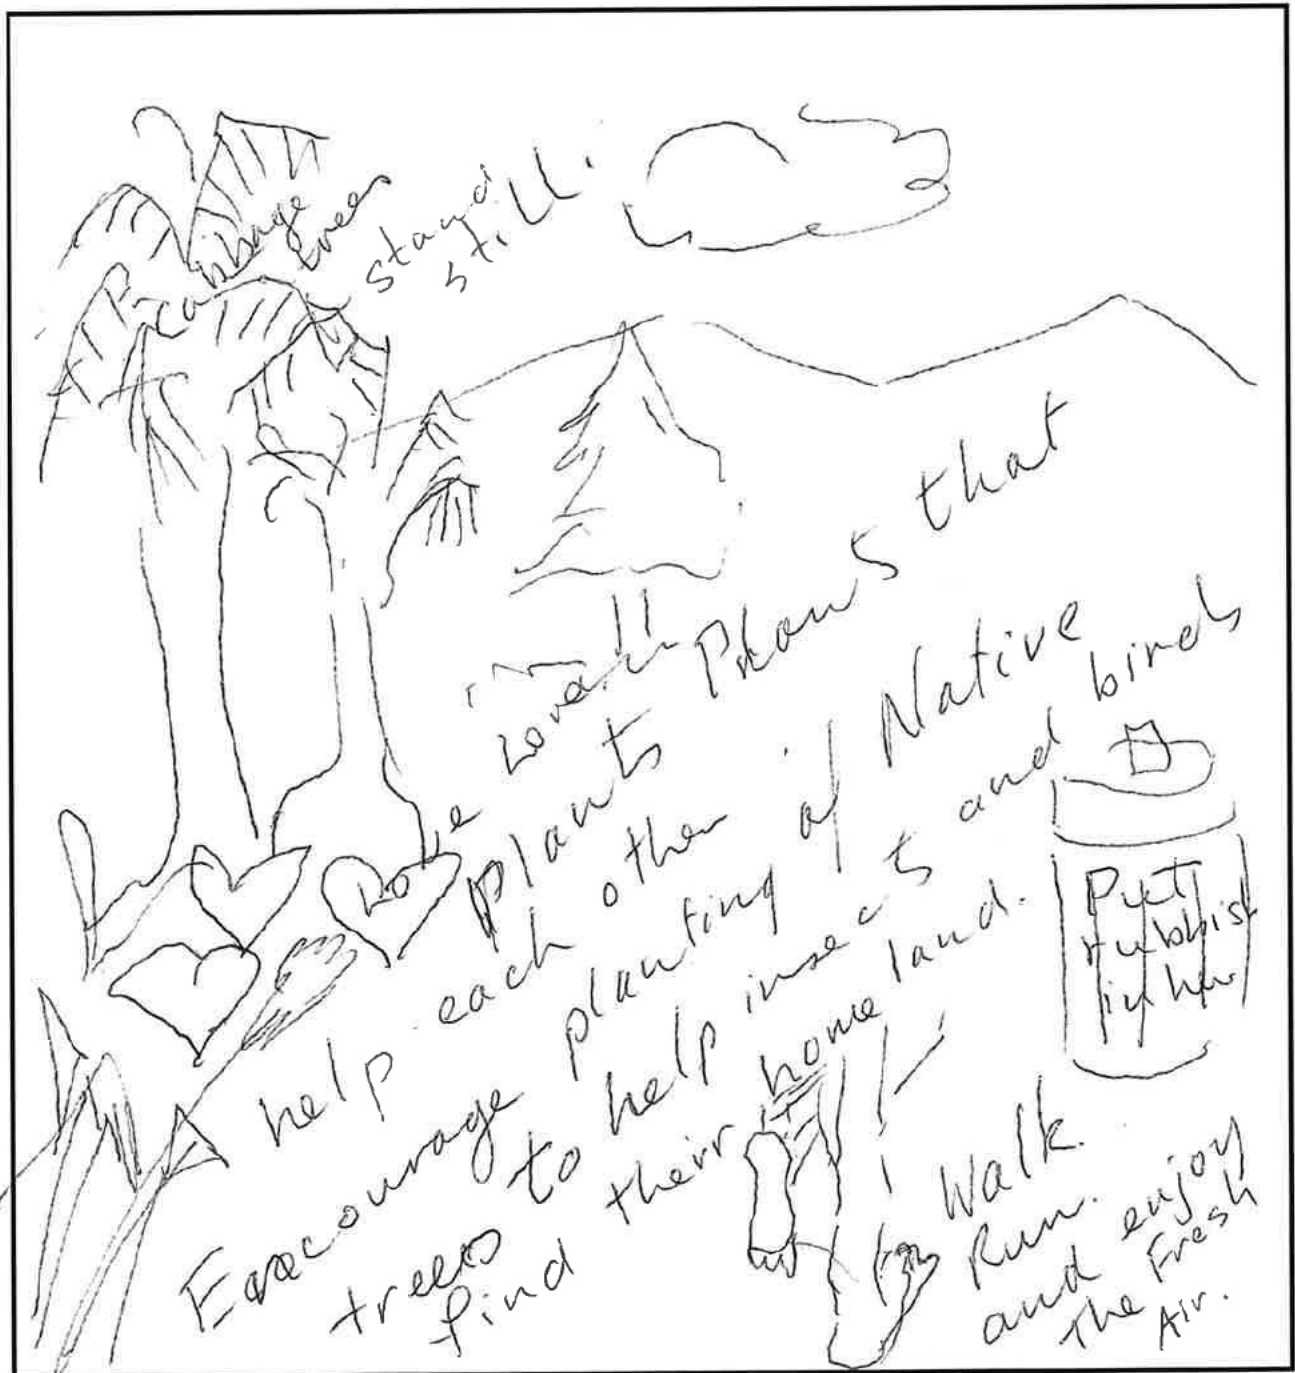 cabbage
trees
stand
still.
Love all
Love Plants Plants that
help each other
Encourage planting of Native
trees to help insects and birds
find their home land.
Put
rubbish
in here
Walk.
Run.
and enjoy
The Fresh
Air.